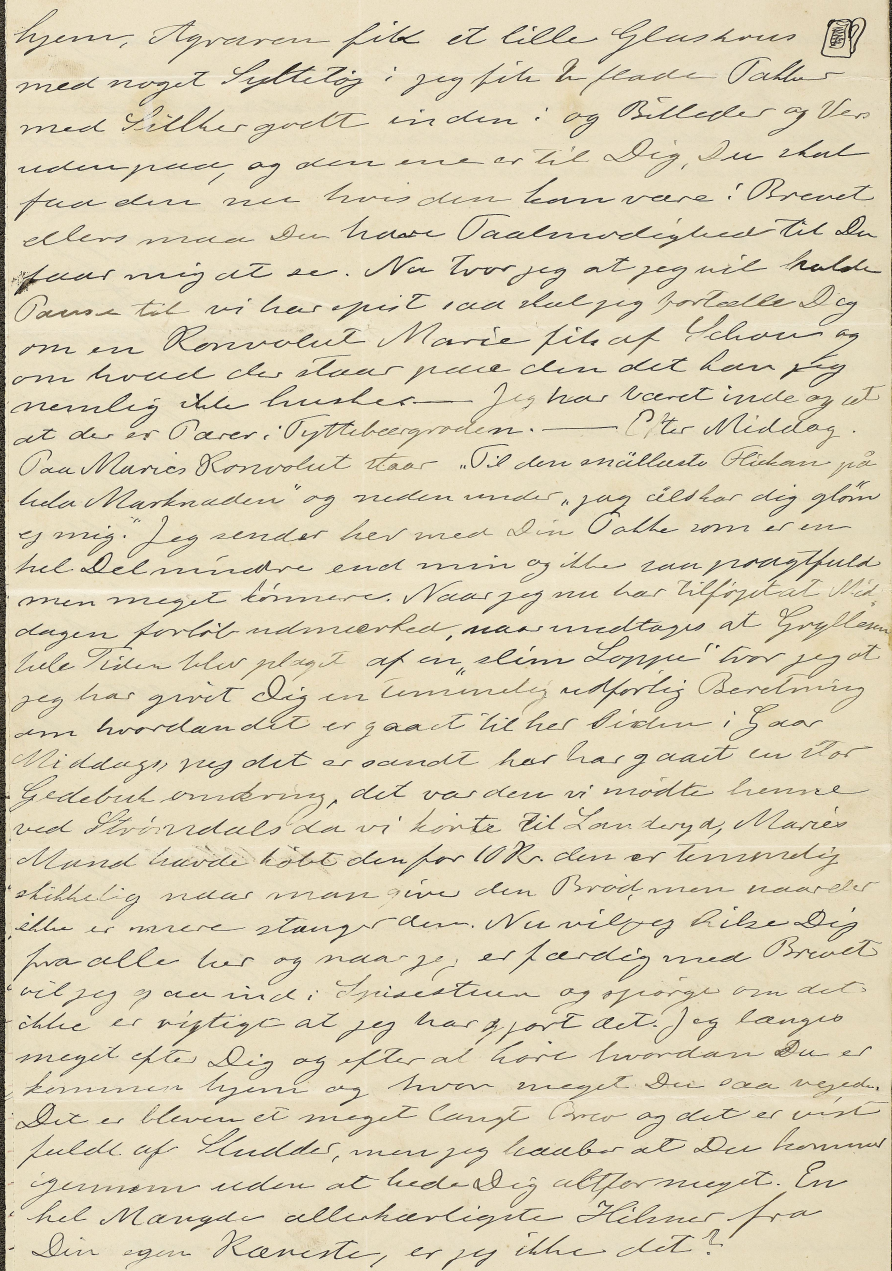 hjem, Agraren fik et lille Glashus
med noget Syltetøj i jeg fik to flade Pakker
med Silkergodt inden i og Billeder og Vers
udenpaa, og den ene er til Dig, Du skal
faa den nu hvis den kan være i Brevet
ellers maa Du have Taalmodighed til Du
faar mig at se. Nu tror jeg at jeg vil holde
Pause til vi har spist saa skal jeg fortælle Dig
om en Konvolut Marie fik af Schou og
om hvad der staar paa den det kan jeg
nemlig ikke huske. — Jeg har været inde og set
at der er Pærer i Tyttebærgrøden. — Efter Middag.
Paa Maries Konvolut staar "Til den snällaste Flickan på
hela Marknaden" og neden under "jag älskar dig glöm
ej mig." Jeg sender her med Din Pakke som er en
hel Del mindre end min og ikke saa pragtfuld
men meget kønnere. Naar jeg nu har tilføjet at Mid
dagen forløb udmærked, naar undtages at Gryllen
hele Tiden blev plaget af en "slim Loppe" tror jeg at
jeg har givet Dig en temmelig udførlig Beretning
om hvordan det er gaaet til her siden i Gaar
Middags, nej det er sandt her har gaaet en stor
Gedebuk omkring, det var den vi mødte henne
ved Strömdals da vi kørte til Landeryd, Maries
Mand havde købt den for 10 Kr. den er temmelig
skikkelig naar man giver den Brød, men naar der
ikke er mere stanger den. Nu vil jeg hilse Dig
fra alle her og naar jeg er færdig med Brevet
vil jeg gaa ind i Spisestuen og spørge om det
ikke er rigtigt at jeg har gjort det. Jeg længes
meget efter Dig og efter at høre hvordan Du er
kommen hjem og hvor meget Du saa vejede.
Det er bleven et meget langt Brev og det er vist
fuldt af Sludder, men jeg haaber at Du kommer
igennem uden at kede Dig altfor meget. En
hel Mængde allerkærligste Hilsner fra
Din egen Ræveste, er jeg ikke det?